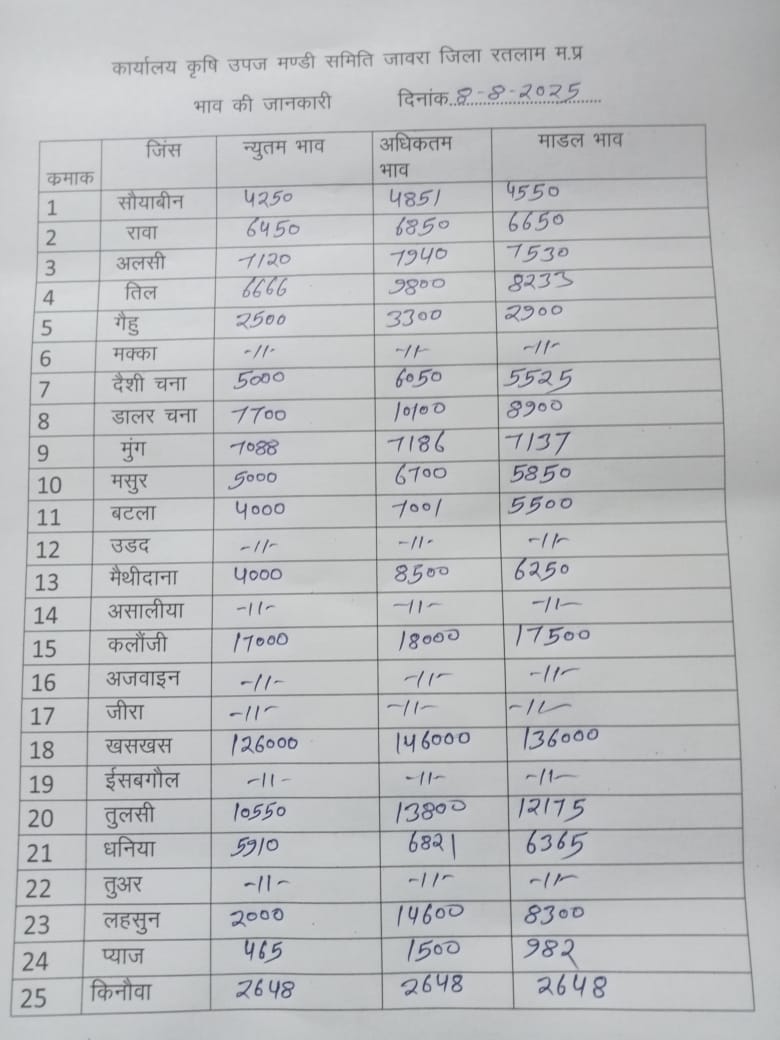 कार्यालय कृषि उपज मण्डी समिति जावरा जिला रतलाम म.प्र
भाव की जानकारी दिनांक 8-8-2025
कमाक जिंस न्युतम भाव अधिकतम भाव माडल भाव
1 सौयाबीन 4250 4851 4550
2 रावा 6450 6850 6650
3 अलसी 7120 7940 7530
4 तिल 6666 9800 8233
5 गैहु 2500 3300 2900
6 मक्का -11- -11- -11-
7 दैशी चना 5000 6050 5525
8 डालर चना 7700 10100 8900
9 मुंग 7088 7186 7137
10 मसुर 5000 6700 5850
11 बटला 4000 7001 5500
12 उडद -11- -11- -11-
13 मैथीदाना 4000 8500 6250
14 असालीया -11- -11- -11-
15 कलौंजी 17000 18000 17500
16 अजवाइन -11- -11- -11-
17 जीरा -11- -11- -11-
18 खसखस 126000 146000 136000
19 ईसबगौल -11- -11- -11-
20 तुलसी 10550 13800 12175
21 धनिया 5910 6821 6365
22 तुअर -11- -11- -11-
23 लहसुन 2000 14600 8300
24 प्याज 465 1500 982
25 किनौवा 2648 2648 2648